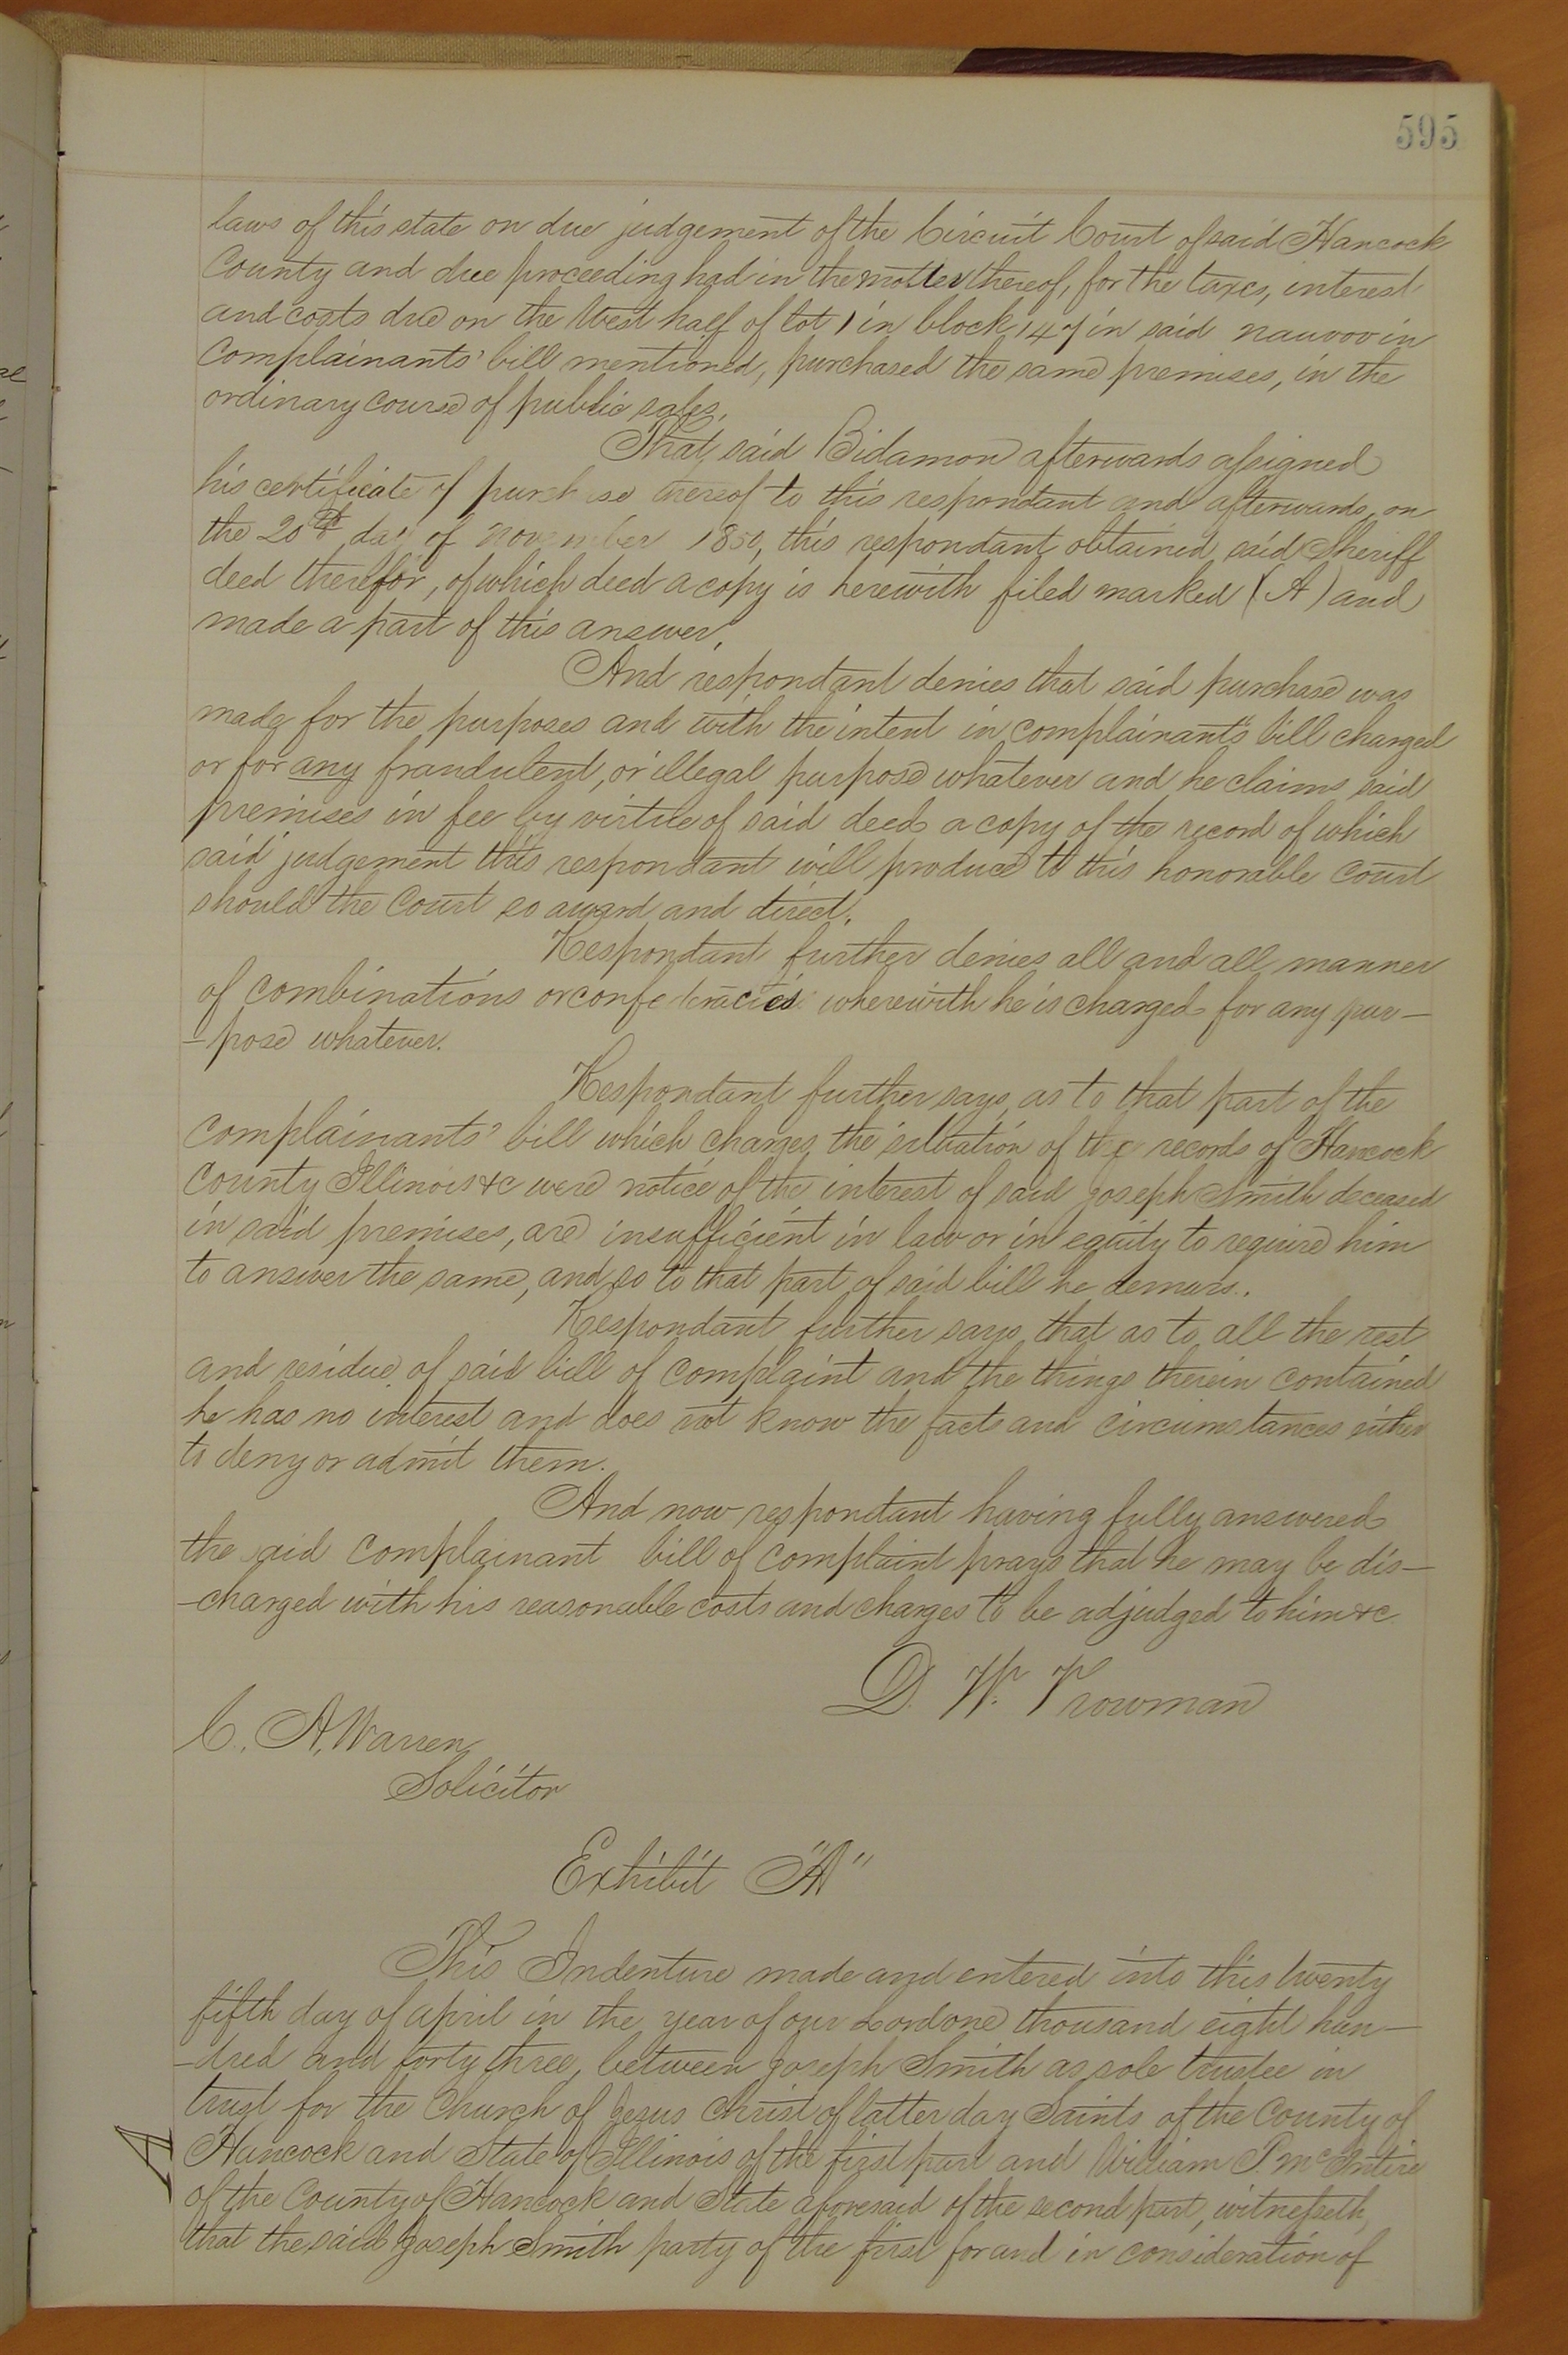 595
laws of this state on due judgement of the Circuit Court of said Hancock
County and due proceeding had in the matter thereof, for the taxes, interest
and costs due on the West half of lot 1 in block 147 in said nauvoo in
Complainants' bill mentioned, purchased the same premises, in the
ordinary course of public sales.
That said Bidamon afterwards assigned
his certificate of purchase thereof to this respondant and afterwards, on
the 20th day of november 1850, this respondant obtained said Sheriff
deed therefor, of which deed a copy is herewith filed marked (A) and
made a part of this answer.
And respondant denies that said purchase was
made for the purposes and with the intent in complainant's bill charged
or for any fraudulent, or illegal purpose whatever and he claims said
premises in fee by virtue of said deed a copy of the record of which
said judgement this respondant will produce to this honorable Court
should the Court so award and direct.
Respondant further denies all and all manner
of combinations or confederacies wherewith he is charged for any pur-
-pose whatever.
Respondant further says, as to that part of the
Complainants' bill which charges the situation of the records of Hancock
County Illinois &c were notice of the interest of said Joseph Smith deceased
in said premises, are insufficient in law or in equity to require him
to answer the same, and so to that part of said bill he demurs.
Respondant further says that as to all the rest
and residue of said bill of complaint and the things therein contained
he has no interest and does not know the facts and circumstances either
to deny or admit them.
And now respondant having fully answered
the said complainant bill of complaint prays that he may be dis-
-charged with his reasonable costs and charges to be adjudged to him &c
D. W. Vrowman
C. A. Warren
Solicitor
Exhibit "A"
This Indenture made and entered into this twenty
fifth day of april in the year of our Lord one thousand eight hun-
-dred and forty three, between Joseph Smith as sole trustee in
trust for the Church of Jesus Christ of latter day Saints of the County of
A Hancock and State of Illinois of the first part and William P. McEntire
of the County of Hancock and State aforesaid of the second part, witnesseth,
that the said Joseph Smith party of the first for and in consideration of